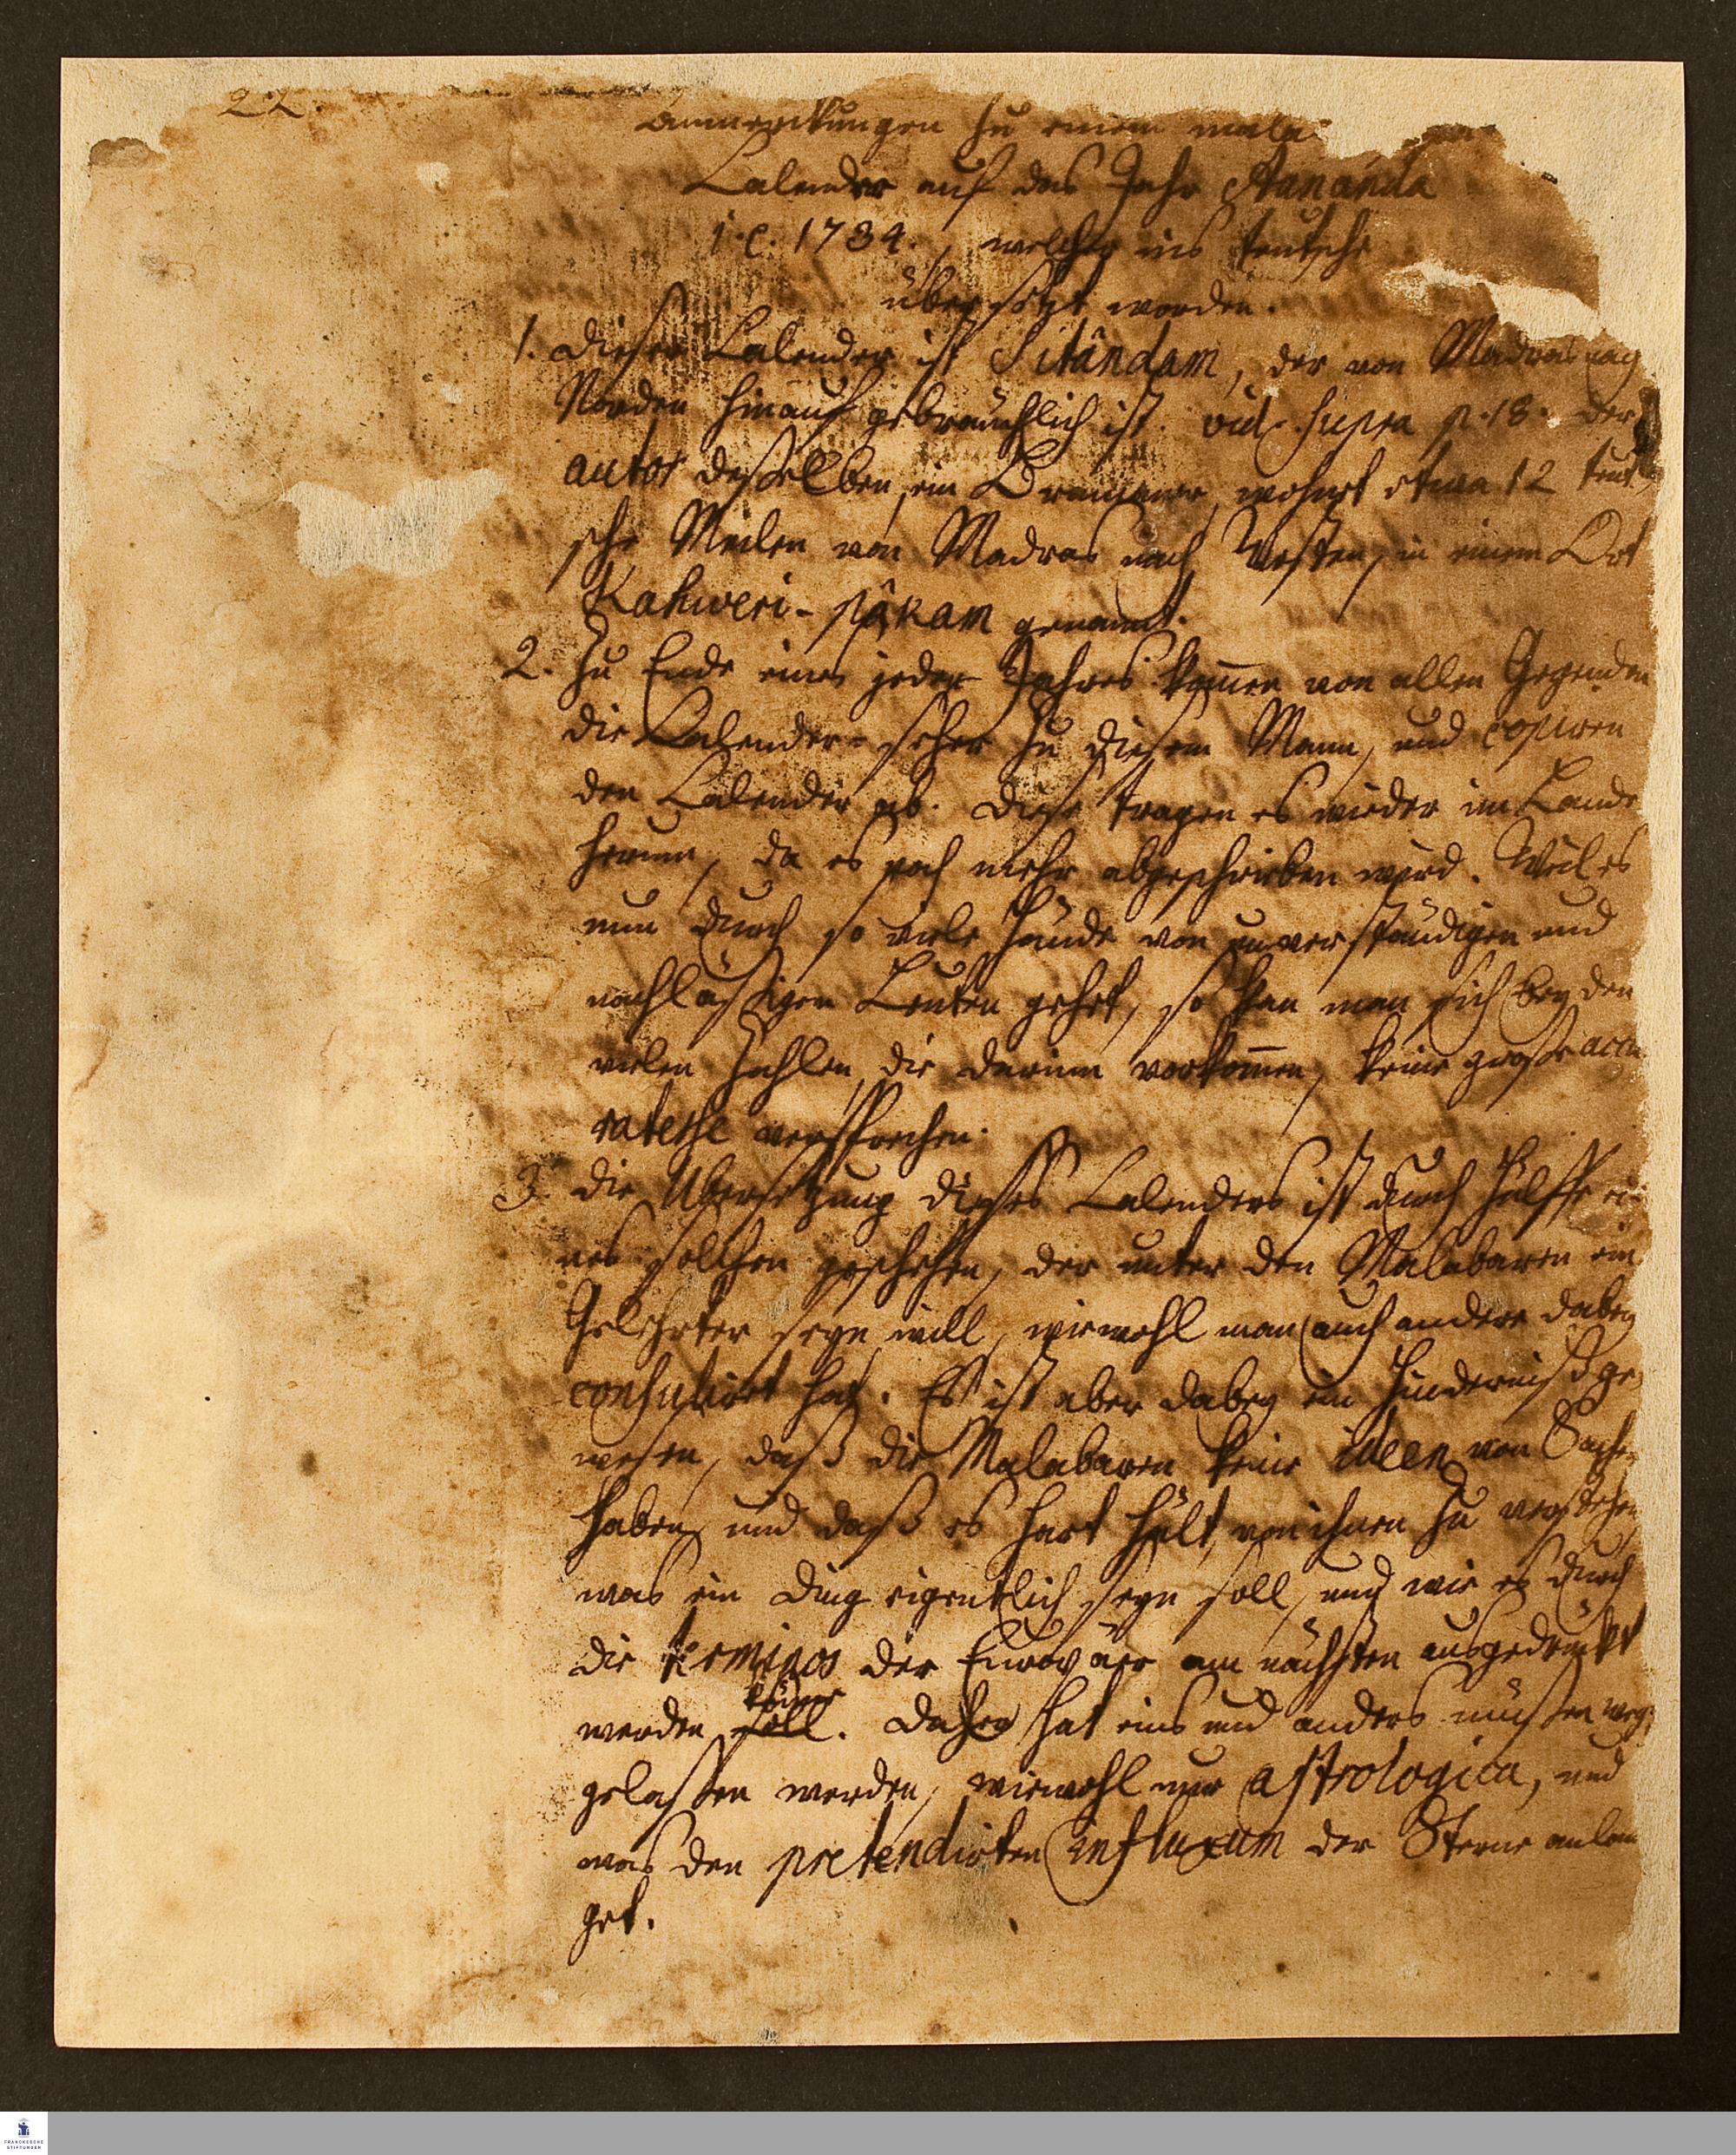 22.
Anmerckungen zu einem mala
Calender auf das Jahr Ananda
i. e. 1734., welcher ins teutsche
übersetzt worden.
1. Dieser Calender ist Sitândam, der von Madras nach
Norden hinauf gebräuchlich ist. vid. supra p. 18. Der
autor deßelben, ein Bramaner, wohnet etwa 12 teut-
sche Meilen von Madras nach Westen, in einem Ort
Kahweri-pâkam genannt.
2. Zu Ende eines jeden Jahres kom̅en von allen Gegenden
die Calender-seher zu diesem Mann, und copiren
den Calender ab. Diese tragen es wieder im Lande
herum, da es noch mehr abgeschrieben wird. Weil es
nun durch so viele Hände von unverständigen und
nachläßigen Leuten gehet, so kan man sich bey den
vielen Zahlen, die darinn vorkom̅en, keine große accu
ratesse versprechen.
3. Die Übersetzung dieses Calenders ist durch Hülffe ei-
nes solchen geschehen, der unter den Malabaren ein
Gelehrter seyn will, wiewohl man auch andere dabey
consulirt hat. Es ist aber dabey ein Hinderniß ge-
wesen, daß die Malabaren keine ideen von Sachen
haben, und daß es hart hält, von ihnen zu verstehen
was ein Ding eigentlich seyn soll, und wie es durch
die terminos der Europäer am nächsten ausgedruckt
könne
werden soll. Daher hat eins und anders müßen weg-
gelaßen werden, wiewohl nur astrologica, und
was den pretendirten influxum der Sterne anlan
get.
FRANCKESCHE
STIFTUNGEN